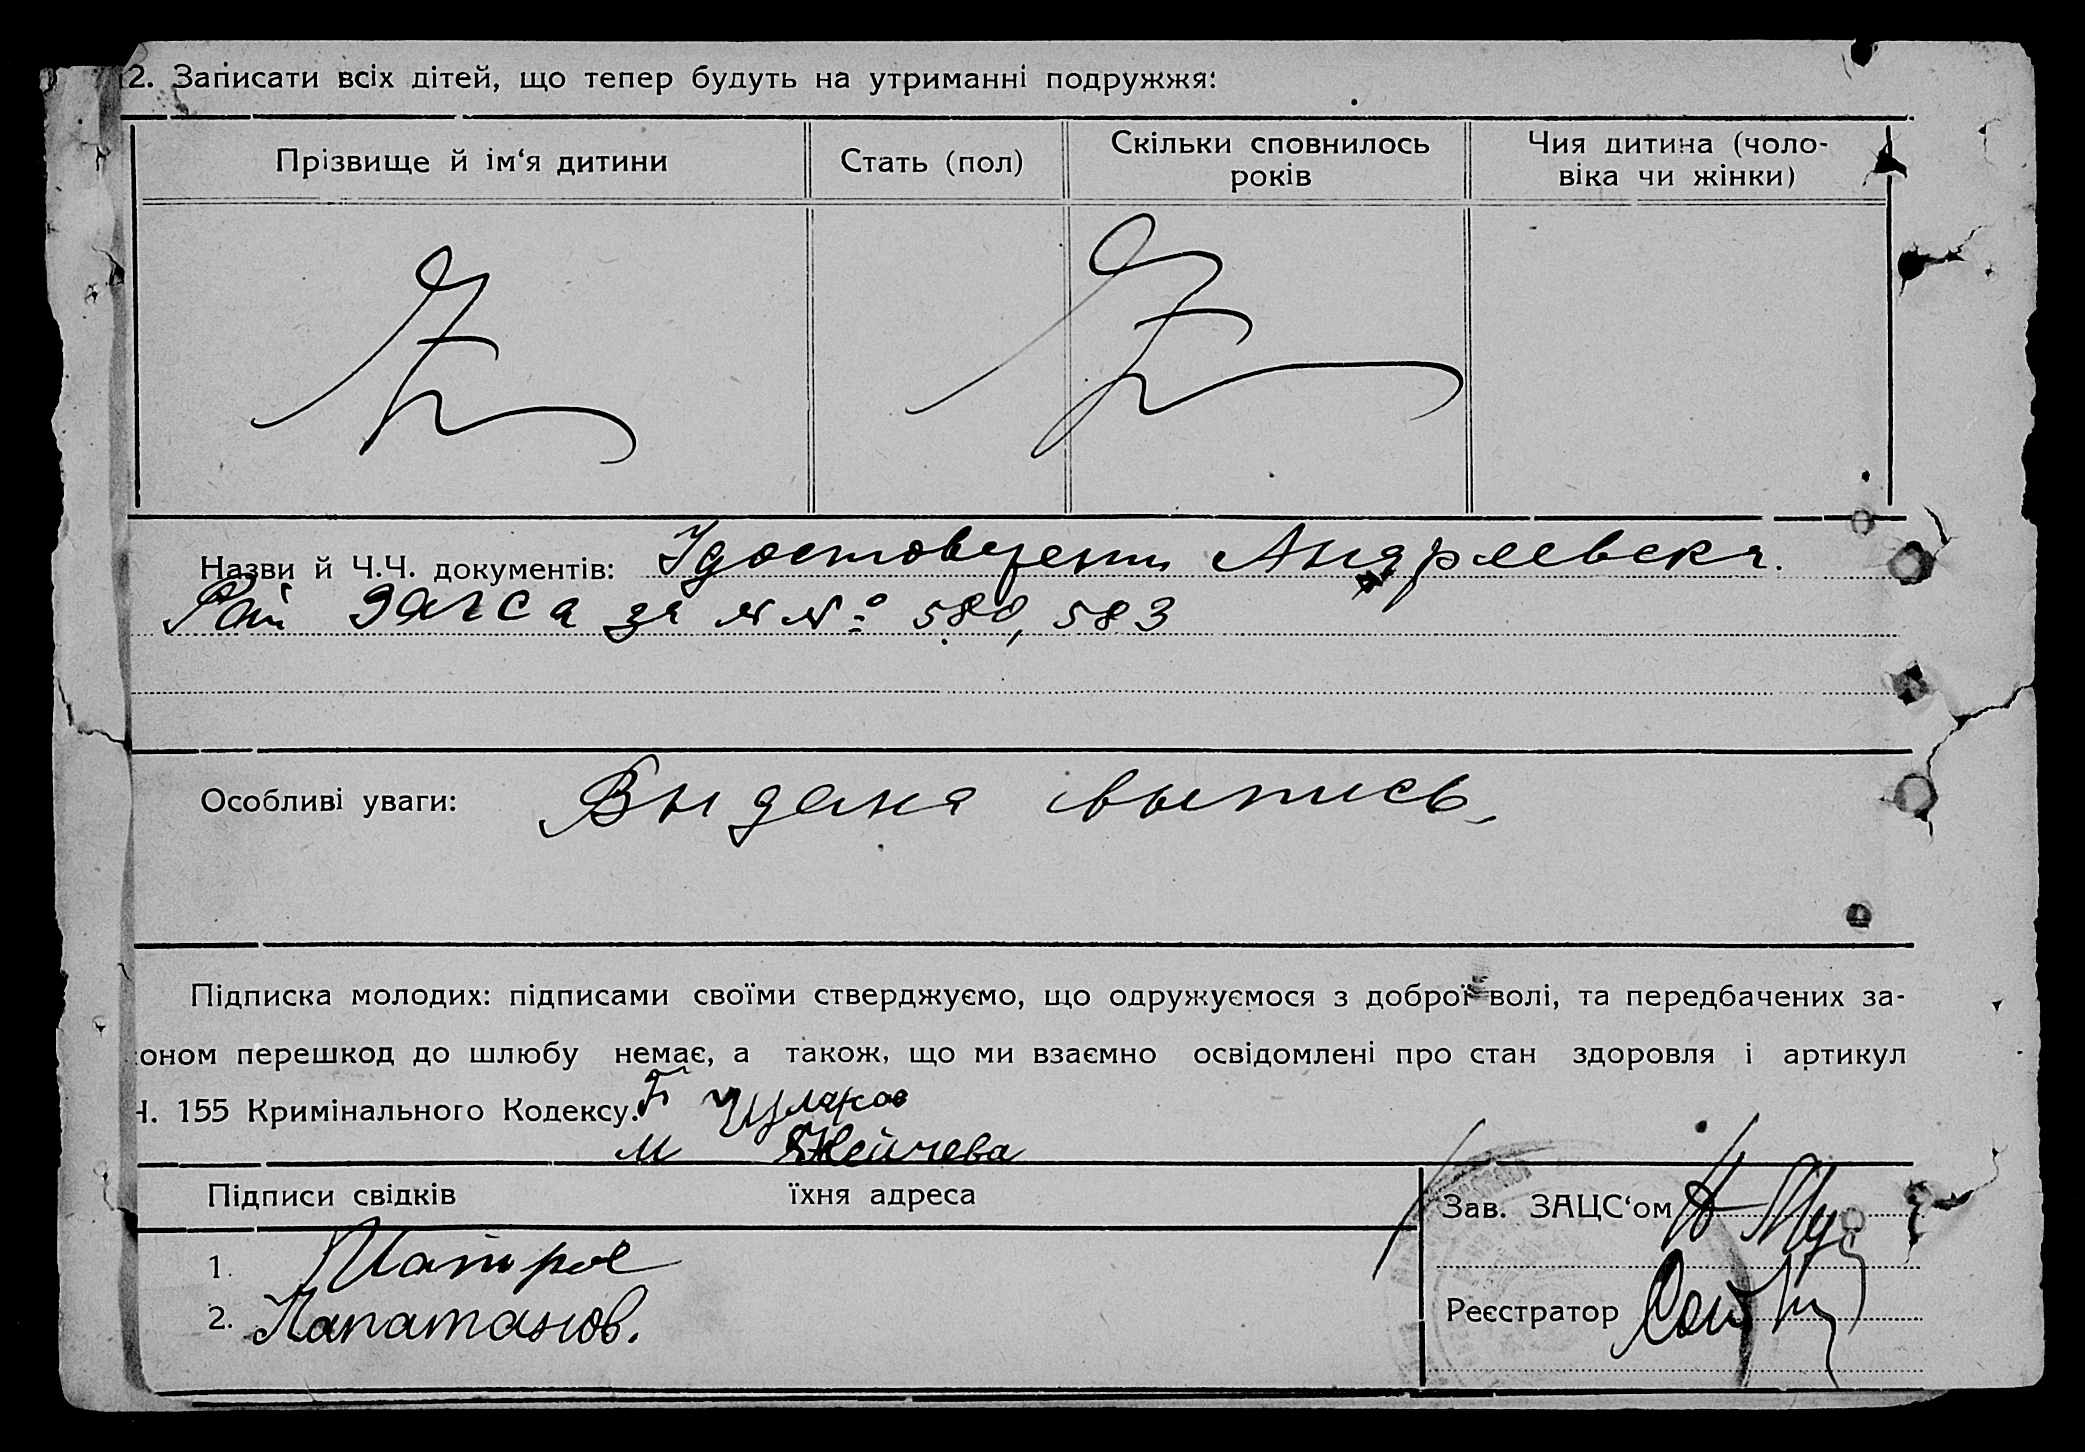 2. Записати всіх дітей, що тепер будуть на утриманні подружжя:
Прізвище й ім‘я дитини
Стать (пол)
Скільки сповнилось
років
Чия дитина (чоло-
віка чи жінки)
Назви й Ч.Ч. документів: Удостоверени Андреевска.
Рай ЗАГСа за №№: 580, 583
Особливі уваги: Выдана выпись
Підписка молодих: підписами своїми стверджуємо, що одружуємося з доброї волі, та передбачених за-
коном перешкод до шлюбу немає, а також, що ми взаємно освідомлені про стан здоровля і артикул
Ч. 155 Кримінального Кодексу.
М Нейчева
Підписи свідків їхня адреса
Зав. ЗАЦС‘ом
1.
2. Папатанов.
Реєстратор